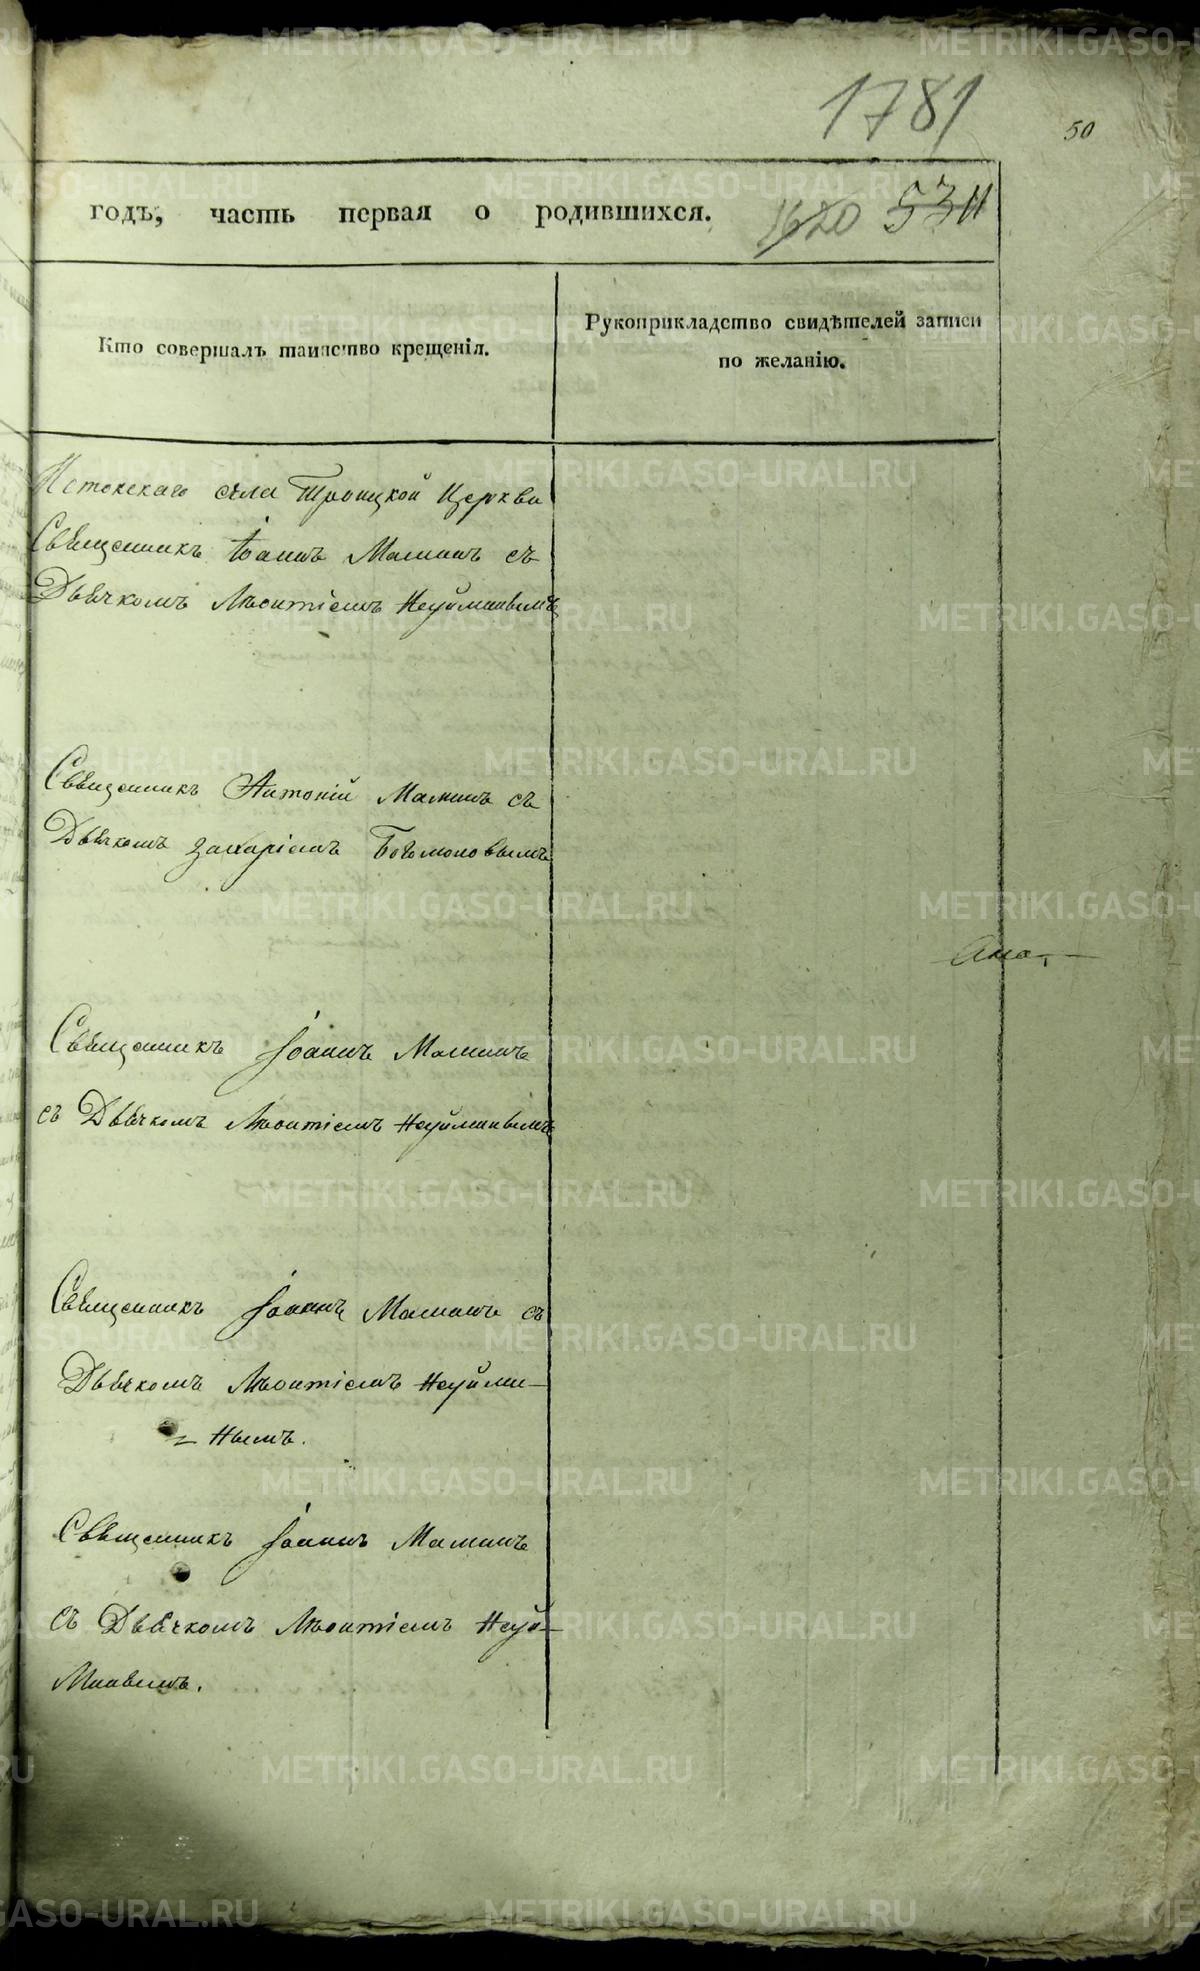 1781
50
годъ, часть первая о родившихся. 1620 5311
Кто совершалъ таинство крещенія.
Рукоприкладство свидѣтелей записи
по желанію.
Истокскаго села Троицкой Церкви
Священникъ Іоаннъ Маминъ съ
Дьячкомъ Леонтіемъ Неуйминымъ
Священникъ Антоній Маминъ съ
Дьячкомъ Захаріемъ Богомоловымъ
Священникъ Іоаннъ Маминъ
съ Дьячкомъ Леонтіемъ Неуйминымъ
Священникъ Іоаннъ Маминъ съ
Дьячкомъ Леонтіемъ Неуйми-
= нымъ.
Священникъ Іоаннъ Маминъ
съ Дьячкомъ Леонтіемъ Неуй-
минымъ.
METRIKI.GASO-URAL.RU